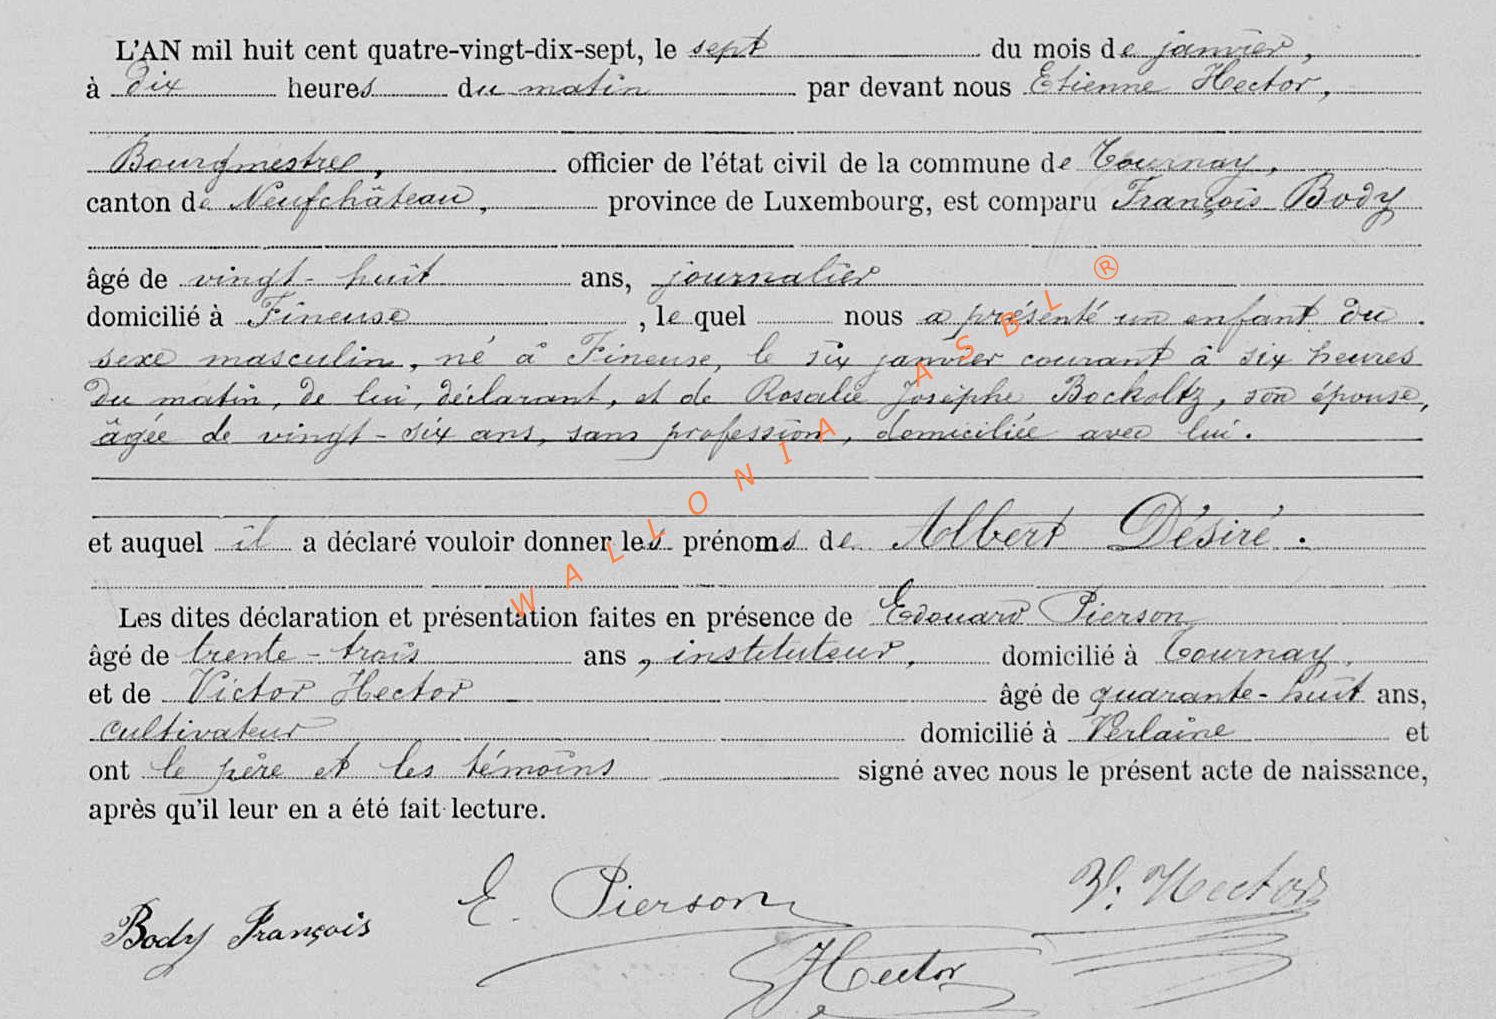 L'AN mil huit cent quatre-vingt-dix-sept, le sept du mois de janvier,
à dix heures du matin par devant nous Etienne Hector,
Bourgmestre, officier de l'état civil de la commune de Tournay,
canton de Neufchâteau, province de Luxembourg, est comparu François Body
âgé de vingt-huit ans, journalier
domicilié à Fineuse, le quel nous a présenté un enfant du
sexe masculin, né à Fineuse, le six janvier courant à six heures
du matin, de lui, déclarant, et de Rosalie Josèphe Bockoltz, son épouse,
âgée de vingt-six ans, sans profession, domiciliée avec lui.
et auquel il a déclaré vouloir donner les prénoms de Albert Désiré.
Les dites déclaration et présentation faites en présence de Edouard Pierson
âgé de trente-trois ans, instituteur, domicilié à Tournay,
et de Victor Hector âgé de quarante-huit ans,
cultivateur domicilié à Verlaine et
ont le père et les témoins signé avec nous le présent acte de naissance,
après qu'il leur en a été fait lecture.
Body François E. Pierson V. Hector
Hector
WALLONIA ASBL ®